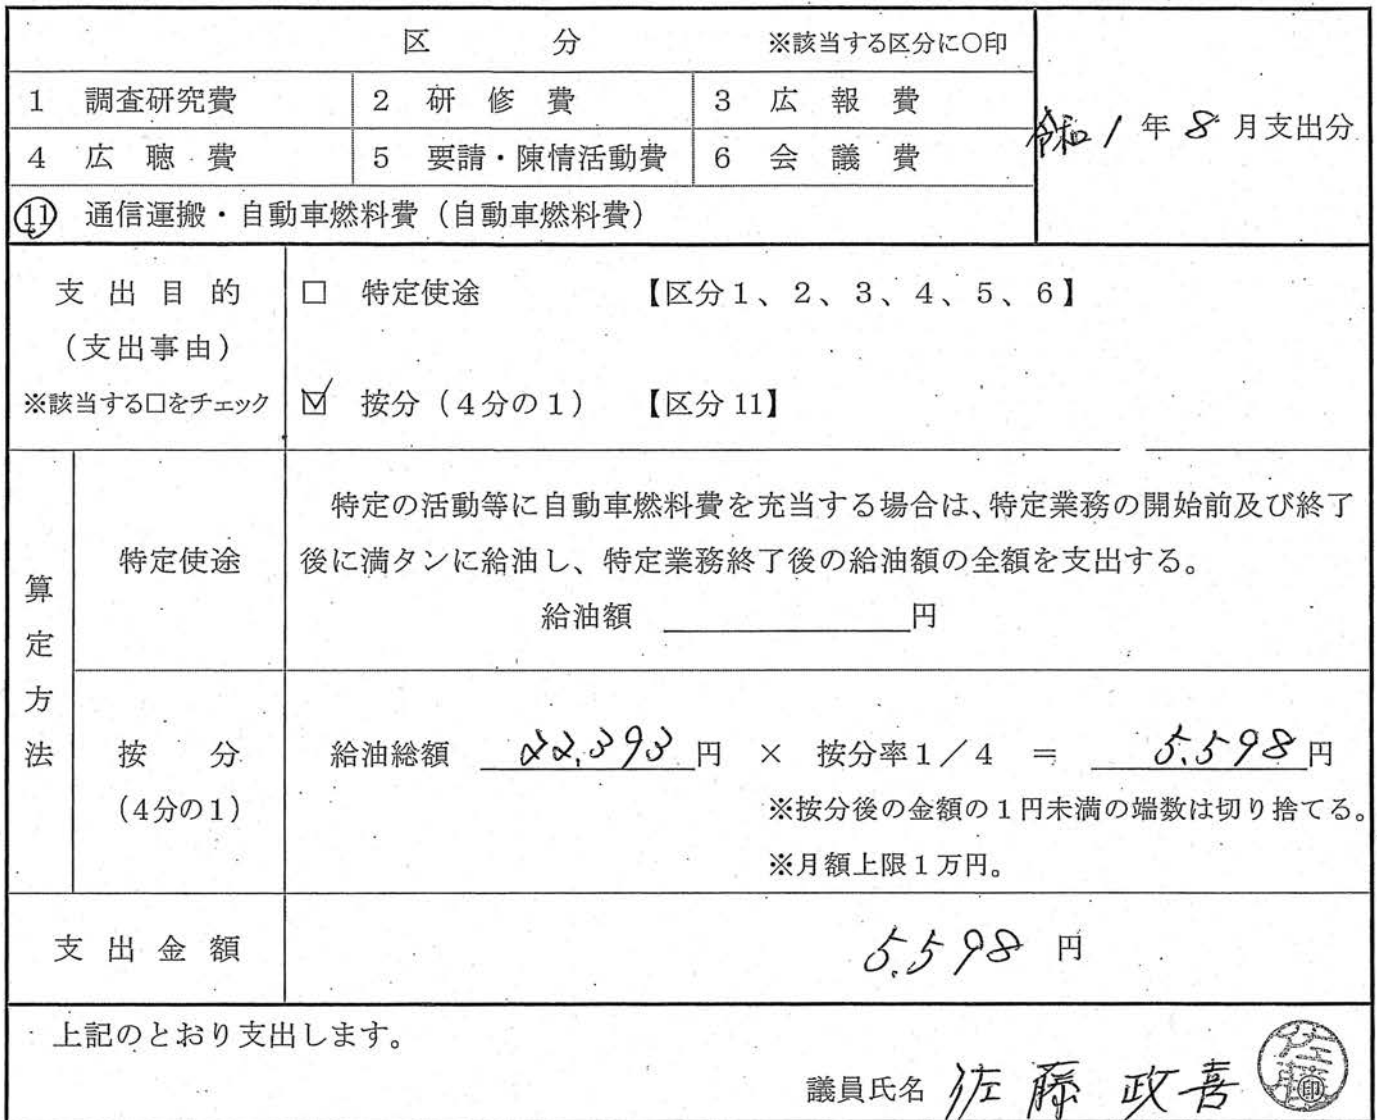 区 分 ※該当する区分に○印
1 調査研究費 2 研修費 3 広報費
令和1年8月支出分
4 広聴費 5 要請・陳情活動費 6 会議費
⑪ 通信運搬・自動車燃料費(自動車燃料費)
支出目的
(支出事由)
※該当する□をチェック
□ 特定使途 【区分1、2、3、4、5、6】
☑ 按分(4分の1) 【区分11】
算定方法
特定使途
特定の活動等に自動車燃料費を充当する場合は、特定業務の開始前及び終了
後に満タンに給油し、特定業務終了後の給油額の全額を支出する。
給油額 円
按分
(4分の1)
給油総額 22,393円 × 按分率1/4 = 5,598円
※按分後の金額の1円未満の端数は切り捨てる。
※月額上限1万円。
支出金額 5,598円
上記のとおり支出します。
議員氏名 佐藤政喜 佐藤 印